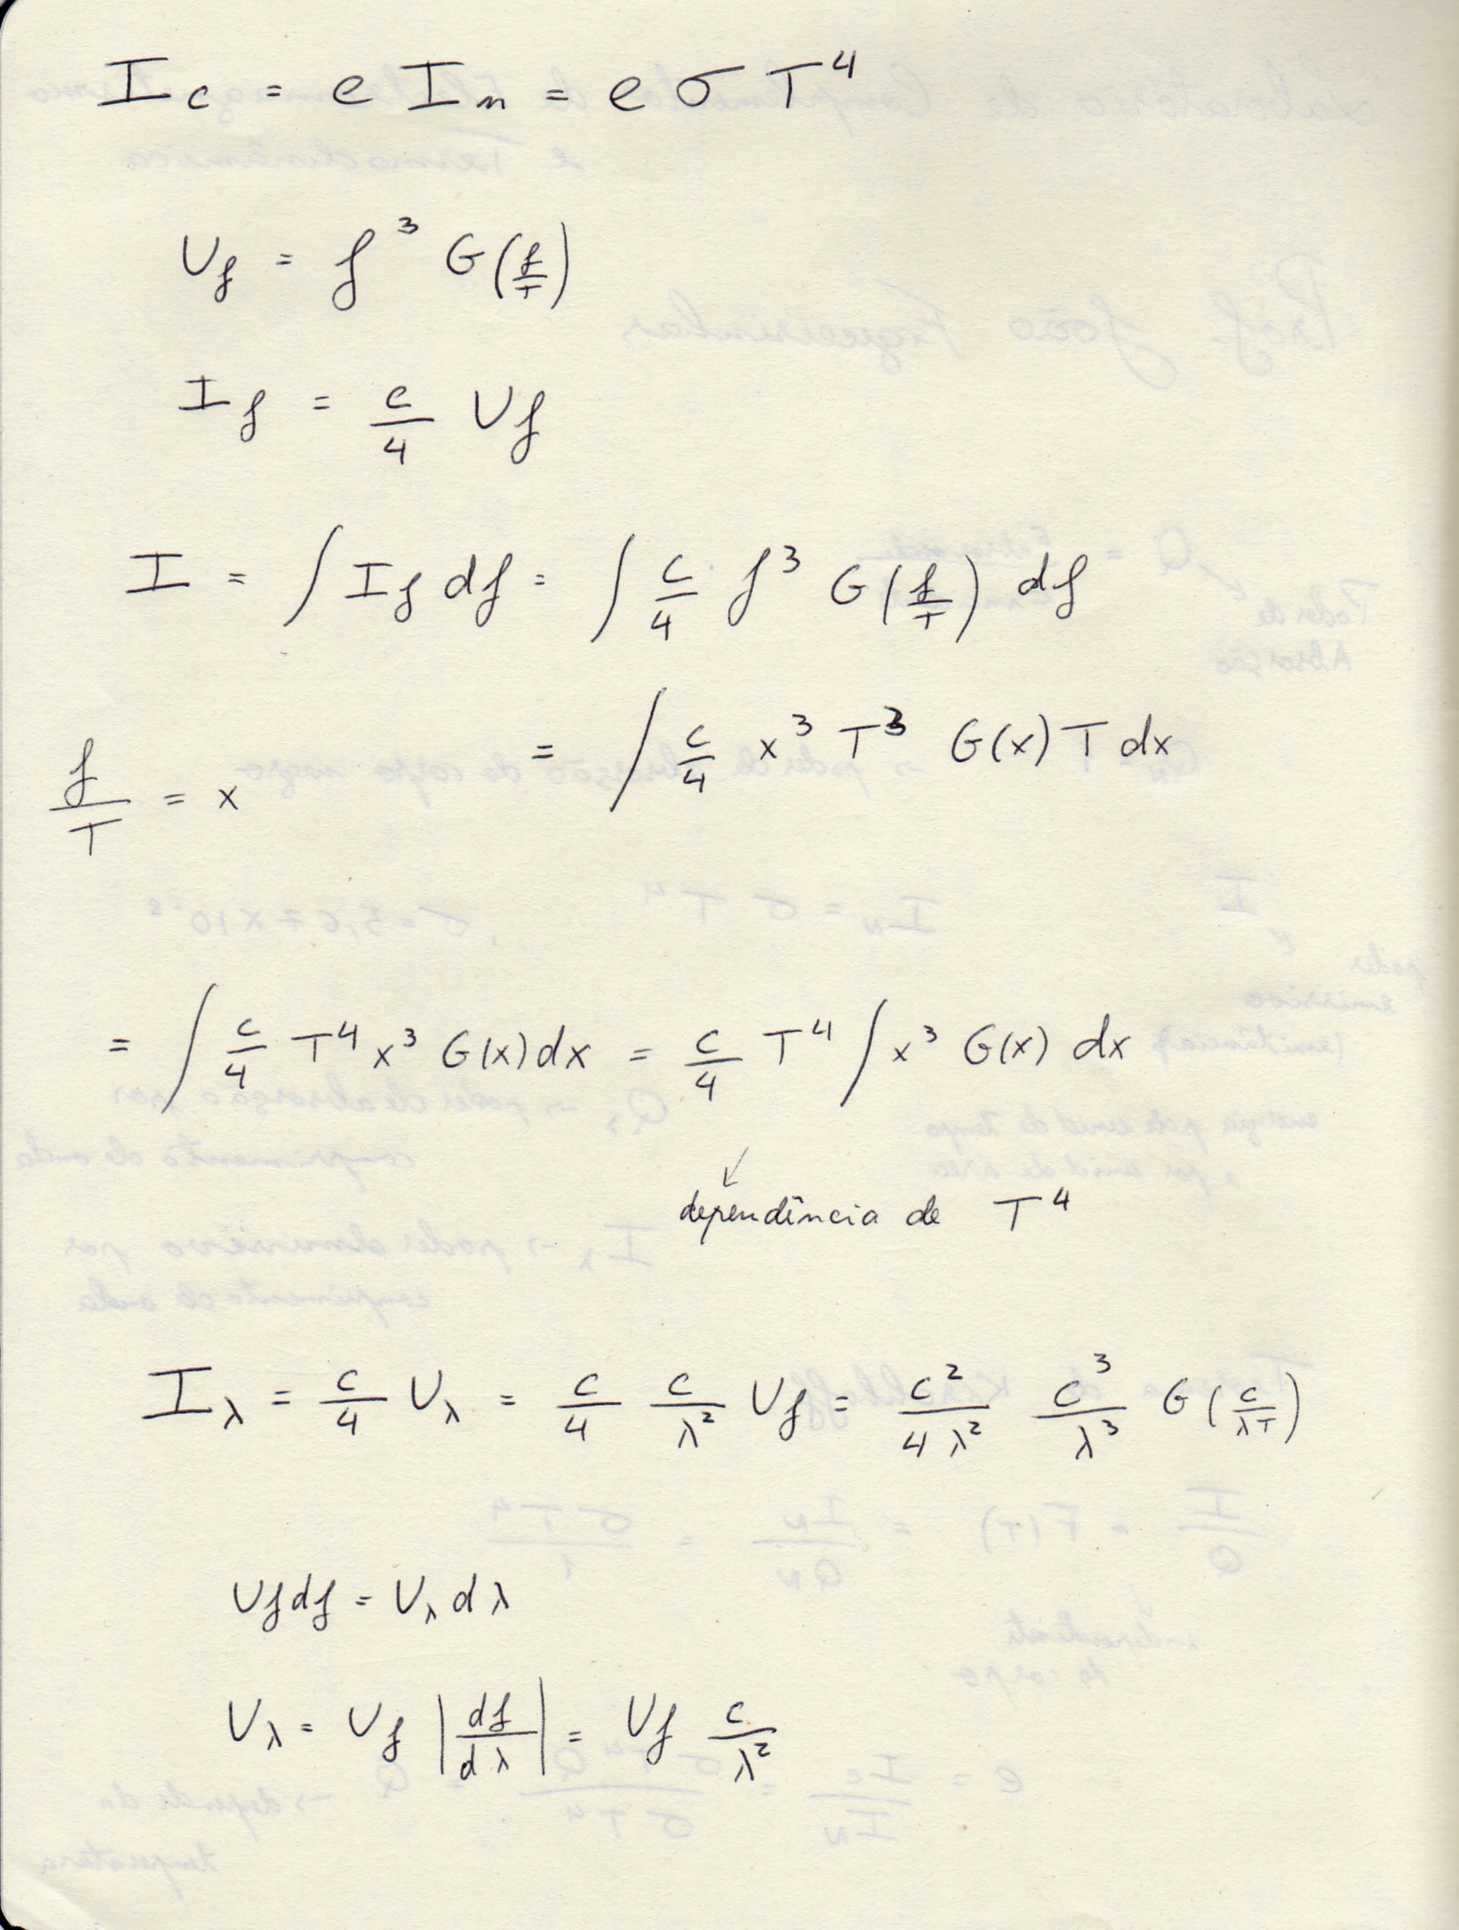 I_c = e I_n = e σ T⁴
U_f = f³ G(f/T)
I_f = c/4 U_f
I = ∫ I_f df = ∫ c/4 f³ G(f/T) df
= ∫ c/4 x³ T³ G(x) T dx
f/T = x
= ∫ c/4 T⁴ x³ G(x) dx = c/4 T⁴ ∫ x³ G(x) dx
↙
dependência de T⁴
I_λ = c/4 U_λ = c/4 c/λ² U_f = c²/4λ² c³/λ³ G(c/λT)
U_f df = U_λ dλ
U_λ = U_f |df/dλ| = U_f c/λ²